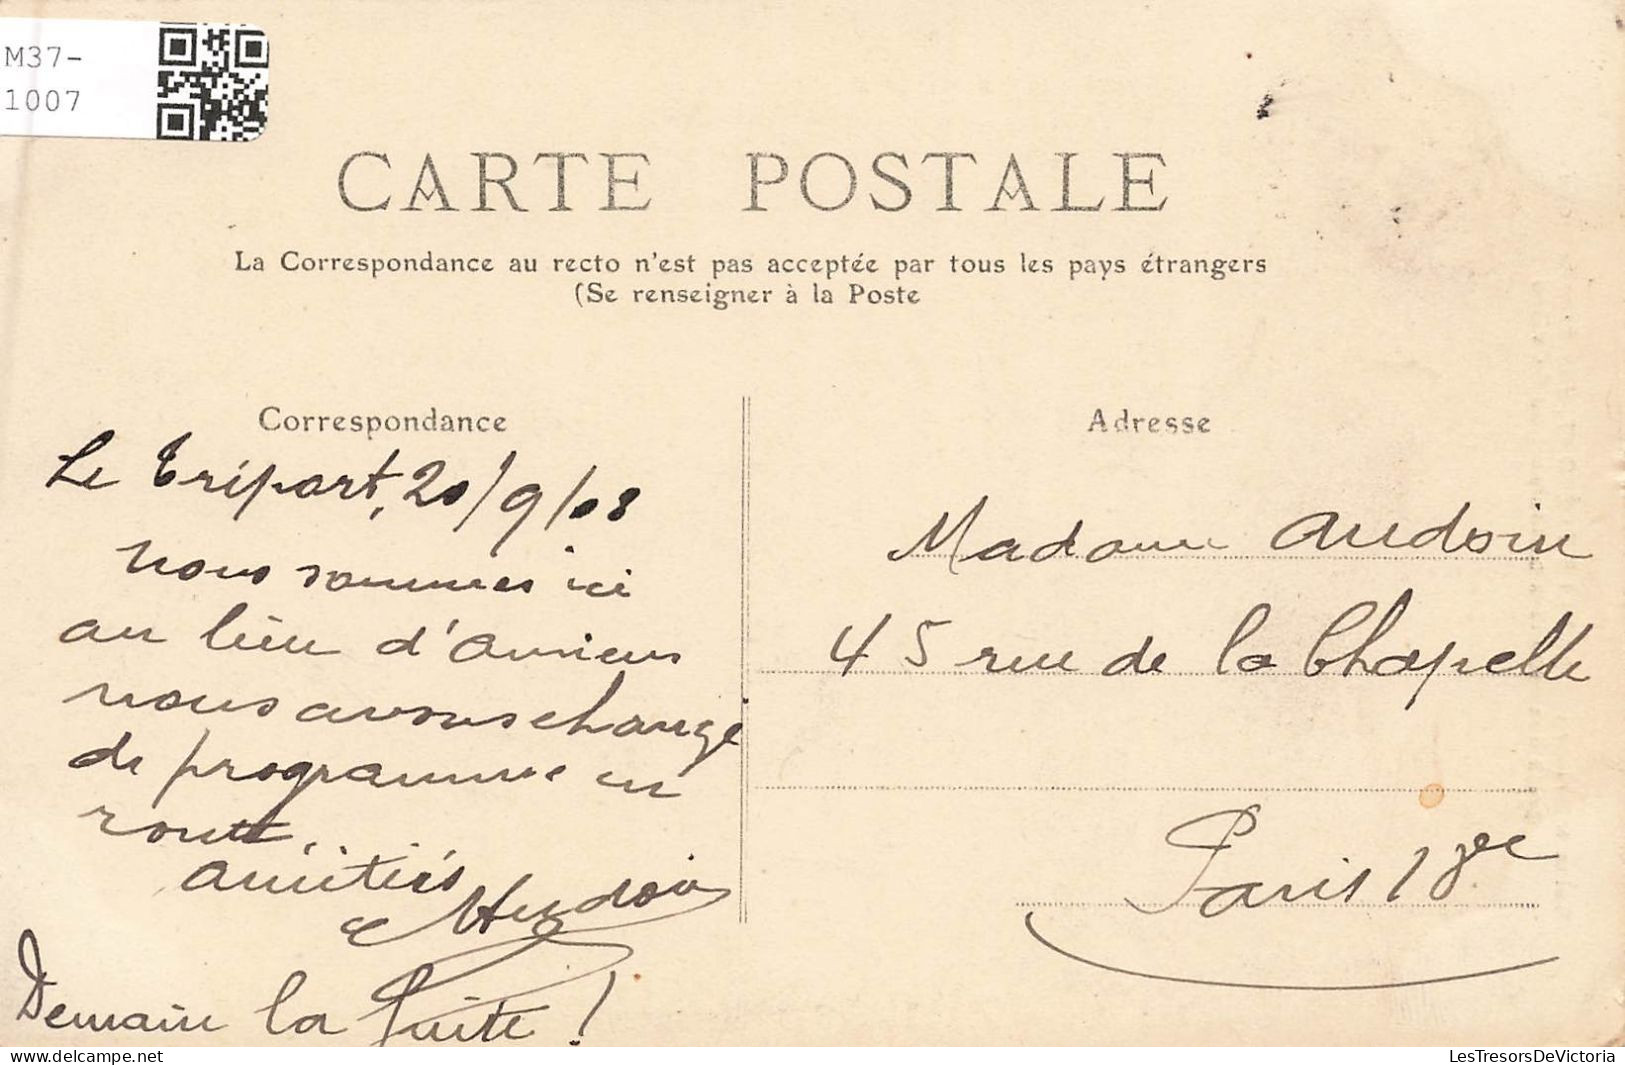 M37-
1007
CARTE POSTALE
La Correspondance au recto n'est pas acceptée par tous les pays étrangers
(Se renseigner à la Poste
Correspondance
Le Tréport, 20/9/08
nous sommes ici
au lieu d'Amiens
nous avons changé
de programme en
route.
Amitiés
Demain la suite !
Adresse
Madame Audoin
45 rue de la Chapelle
Paris 18e
LesTresorsDeVictoria
delcampe.net